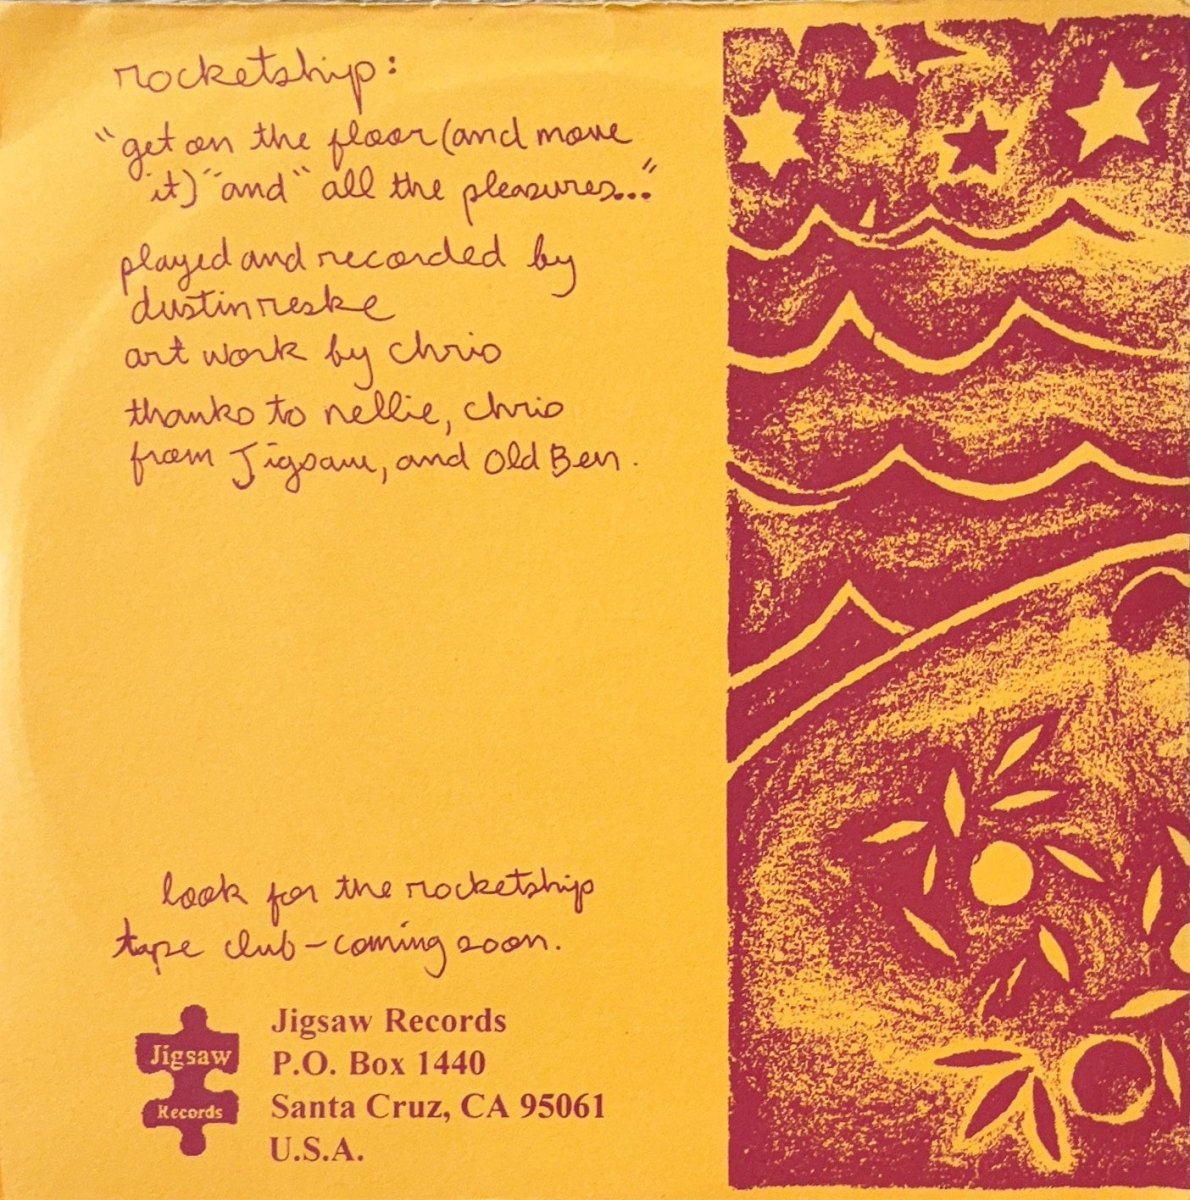 rocketship:
"get on the floor (and move
it)" and "all the pleasures..."
played and recorded by
dustin reske
art work by chris
thanks to nellie, chris
from Jigsaw, and Old Ben.
look for the rocketship
tape club - coming soon.
Jigsaw
Records
Jigsaw Records
P.O. Box 1440
Santa Cruz, CA 95061
U.S.A.